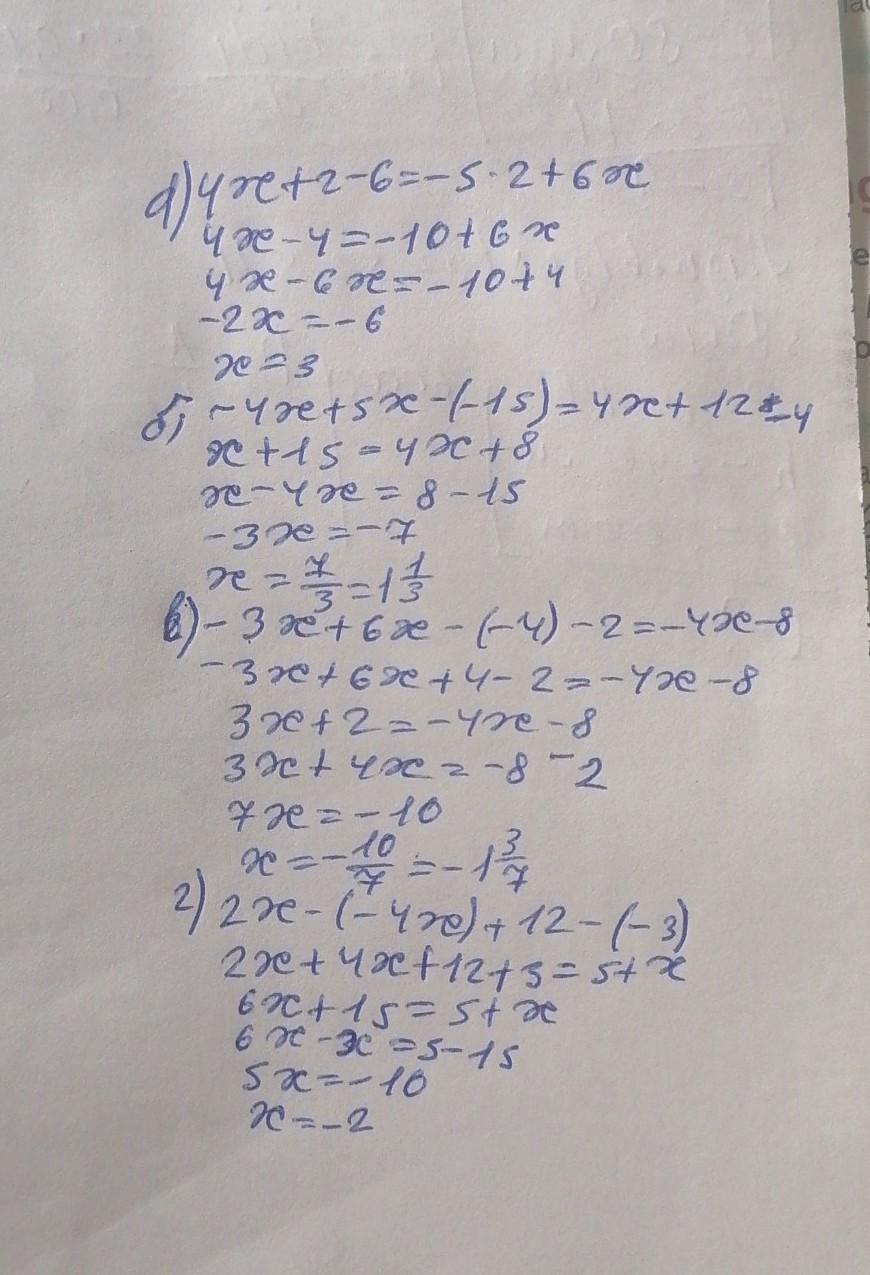 а) 4x+2-6=-5·2+6x
4x-4=-10+6x
4x-6x=-10+4
-2x=-6
x=3
б) -4x+5x-(-15)=4x+12-4
x+15=4x+8
x-4x=8-15
-3x=-7
x=7/3=1 1/3
в) -3x+6x-(-4)-2=-4x-8
-3x+6x+4-2=-4x-8
3x+2=-4x-8
3x+4x=-8-2
7x=-10
x=-10/7=-1 3/7
г) 2x-(-4x)+12-(-3)
2x+4x+12+3=5+x
6x+15=5+x
6x-x=5-15
5x=-10
x=-2